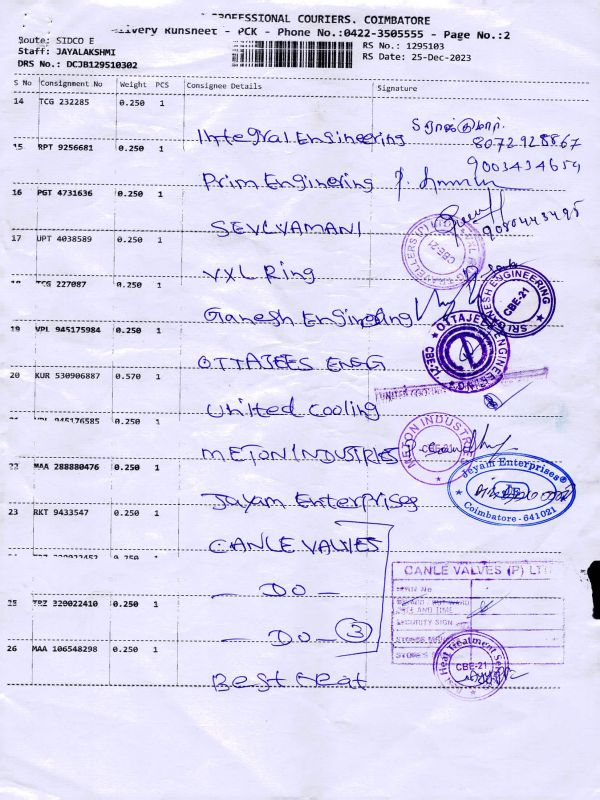 PROFESSIONAL COURIERS. COIMBATORE
Delivery Runsheet - PCK - Phone No.:0422-3505555 - Page No.:2
Route: SIDCO E
Staff: JAYALAKSHMI
DRS No.: DCJB129510302
RS No.: 1295103
RS Date: 25-Dec-2023
S No Consignment No Weight PCS Consignee Details Signature
14 TCG 232285 0.250 1
Integral Engineering
8072928867
15 RPT 9256681 0.250 1
9003434654
Prim Engineering
16 PGT 4731636 0.250 1
SEVLVAMANI
9080443495
17 UPT 4038589 0.250 1
VXL Ring
18 TCG 227087 0.250 1
Ganesh Engineering
SRI GANESH ENGINEERING
CBE-21
19 VPL 945175984 0.250 1
OTTAJEES ENGG
OTTAJEES ENGINEERING
20 KUR 530906887 0.570 1
United Cooling
VPL 945176585 0.250 1
METON INDUSTRIES
METON INDUSTRIES
CBE-21
22 MAA 288880476 0.250 1
Jayam Enterprises
Jeyam Enterprises®
Coimbatore - 641021
23 RKT 9433547 0.250 1
CANLE VALVES
CANLE VALVES (P) LTD
- DO -
DATE AND TIME
SECURITY SIGN
25 TRZ 320022410 0.250 1
- DO - 3
26 MAA 106548298 0.250 1
Best Heat
Heat Treatment
CBE-21